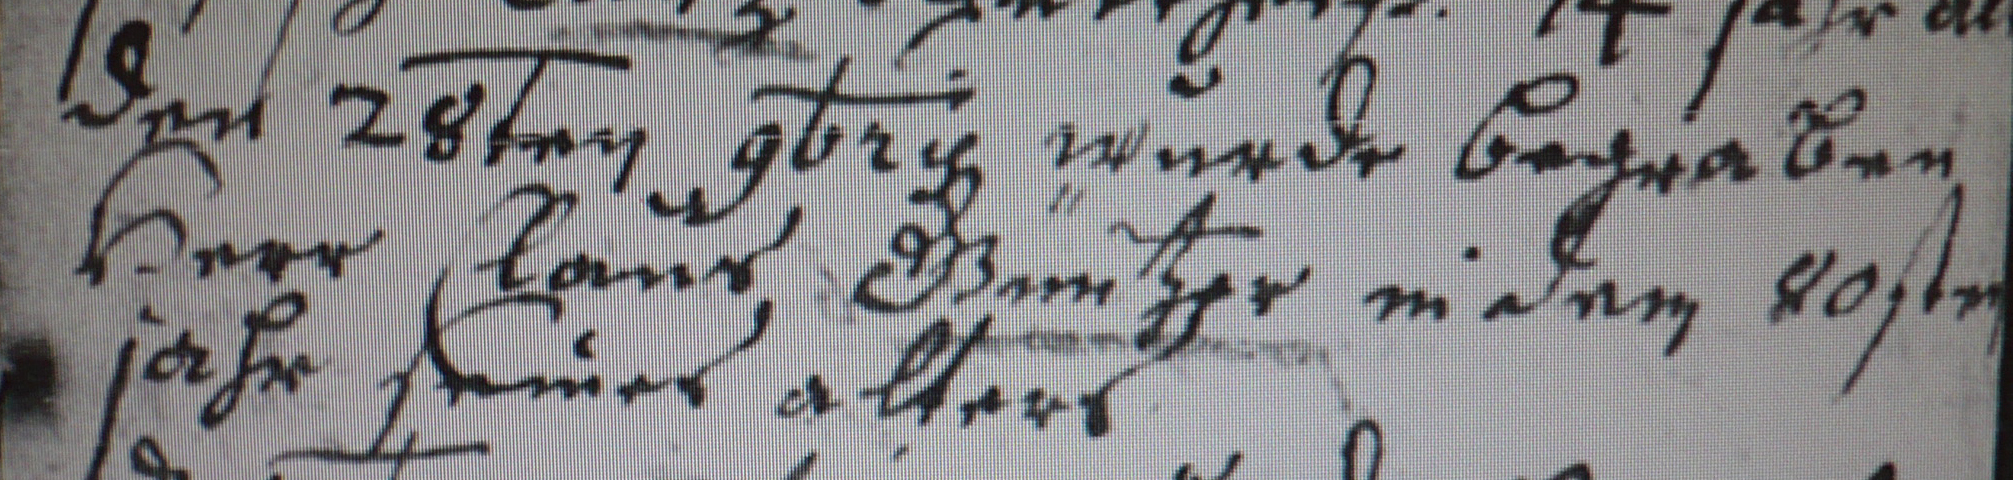 14 Jahr al
den 28ten 9bris wurde begraben
Herr Hans in dem 80sten
jahr seines alters